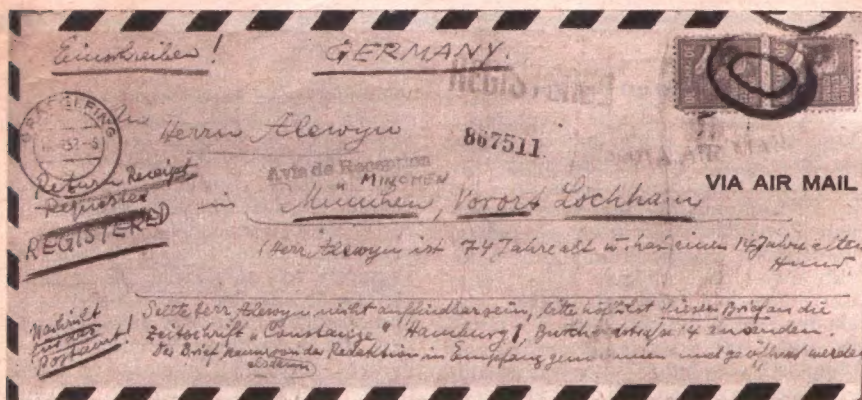 Einschreiben! GERMANY.
REGISTERED
An
Herrn Alewyn 867511
GRAEFELFING
Avis de Reception
MINCHEN
in München, Vorort Lochham
VIA AIR MAIL
Return Receipt
Requested
REGISTERED
(Herr Alewyn ist 74 Jahre alt u. hat einen 14 Jahre alten
Hund.
Nachricht
für das
Postamt!
Sollte Herr Alewyn nicht auffindbar sein, bitte höflichst diesen Brief an die
Zeitschrift "Constanze" Hamburg 1, Burchardstraße 14 zusenden.
Der Brief kann von der Redaktion in Empfang genommen und geöffnet werden
alsdann